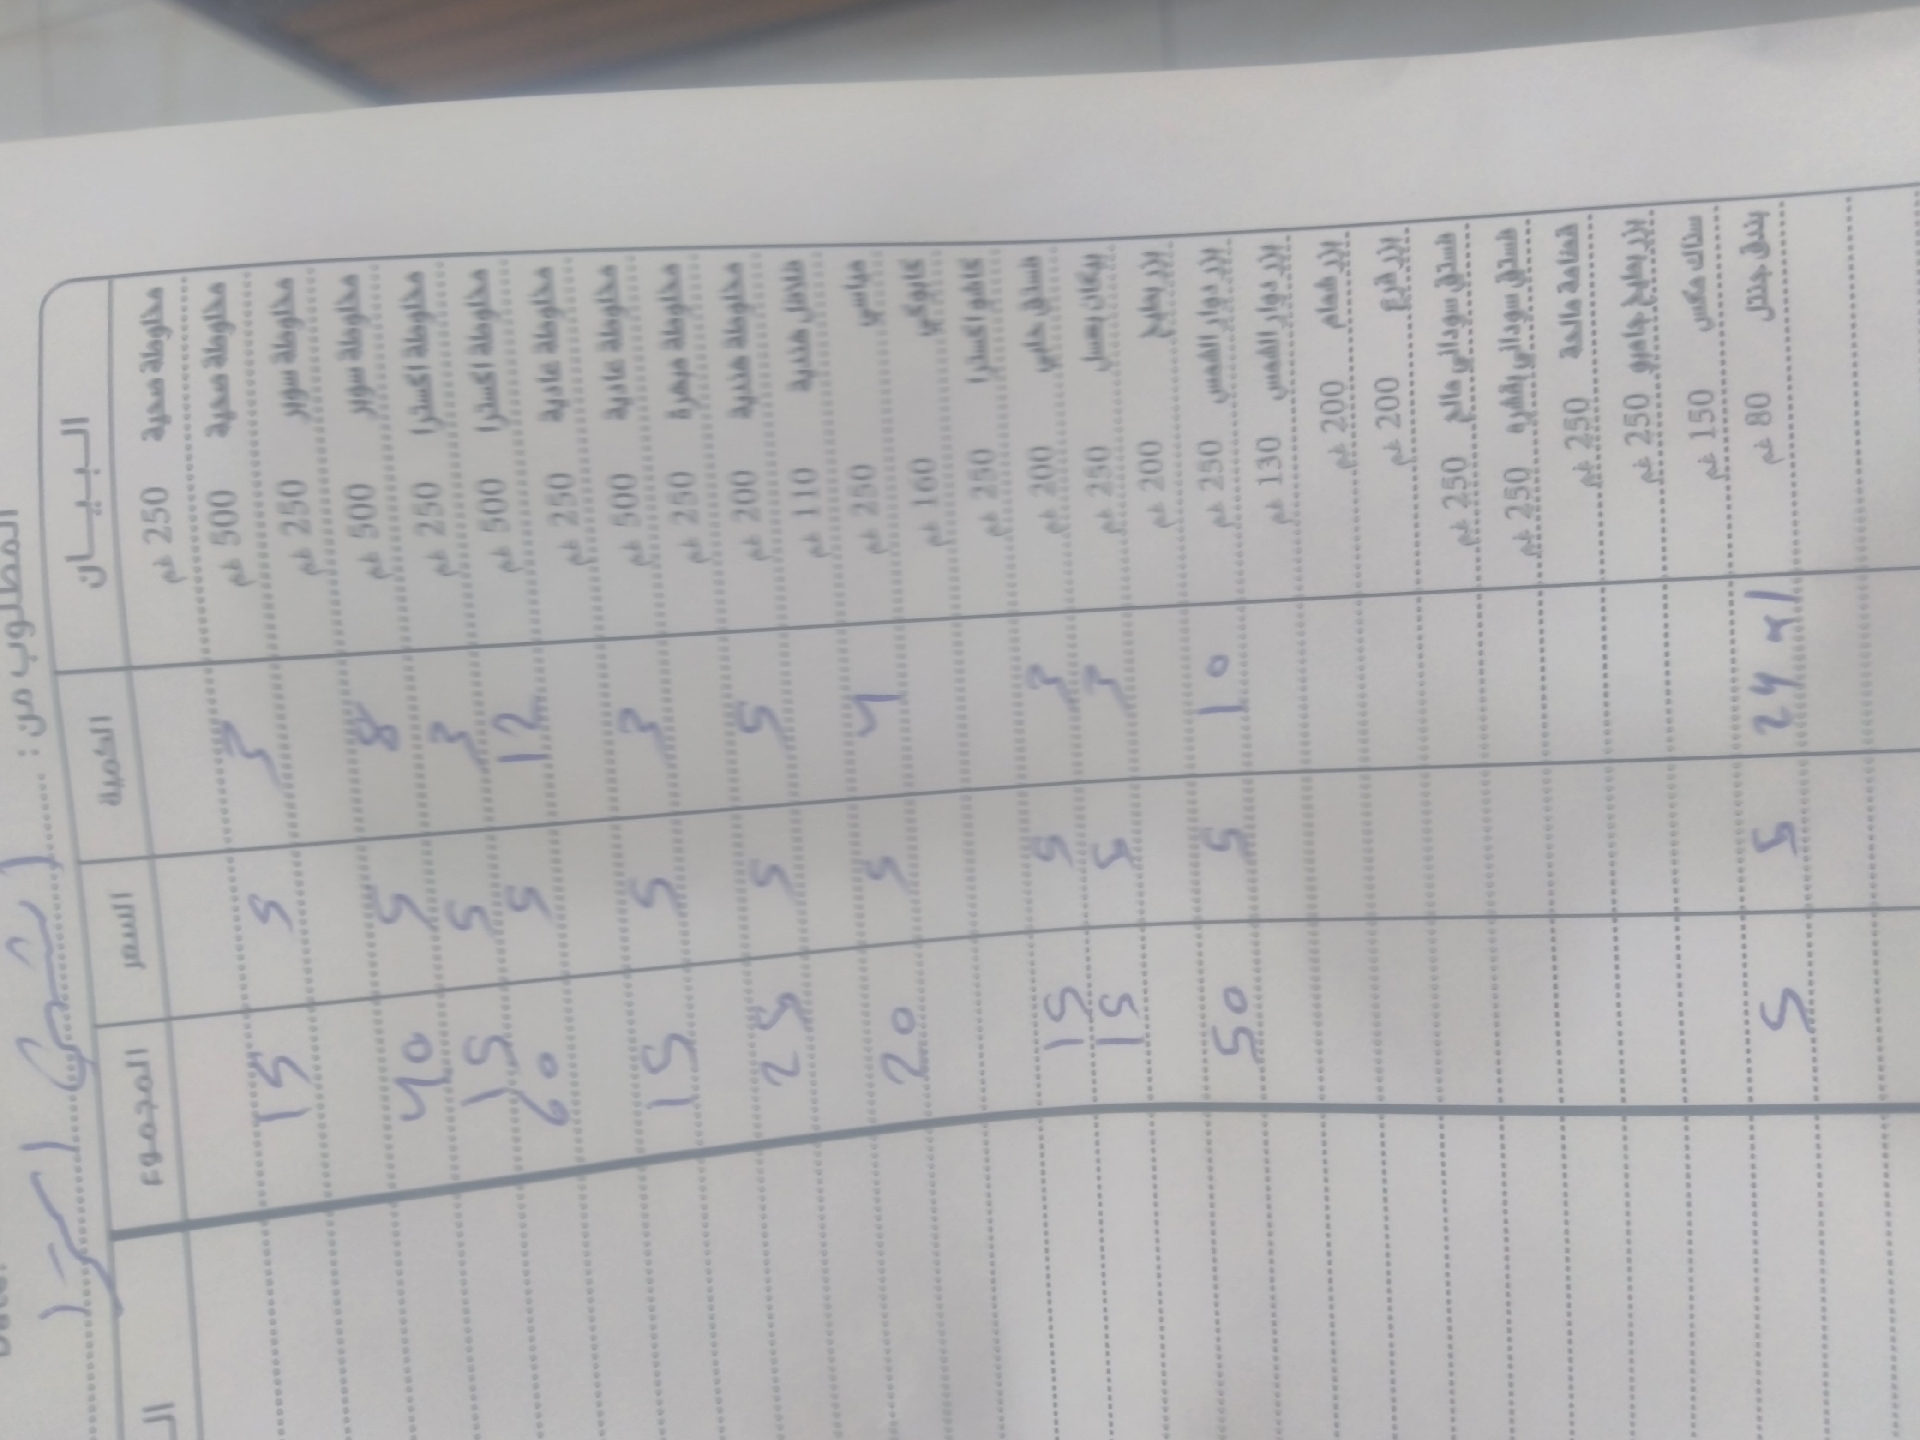 المطلوب من :
البيان الكمية السعر المجموع
مخلوطة صحية 250 غم
مخلوطة صحية 500 غم 3 5 15
مخلوطة سوبر 250 غم
مخلوطة سوبر 500 غم 8 5 40
مخلوطة اكسترا 250 غم 3 5 15
مخلوطة اكسترا 500 غم 12 5 60
مخلوطة عادية 250 غم
مخلوطة عادية 500 غم 3 5 15
مخلوطة مبهرة 250 غم
مخلوطة هندية 200 غم 5 5 25
فلافل هندية 110 غم
250 غم 4 5 20
160 غم
كاشو اكسترا 250 غم
فستق حلبي 200 غم 3 5 15
بيكان بعسل 250 غم 3 5 15
بزر بطيخ 200 غم
بزر دوار الشمس 250 غم 10 5 50
بزر دوار الشمس 130 غم
بزر شمام 200 غم
بزر قرع 200 غم
فستق سوداني مالح 250 غم
فستق سوداني بقشره 250 غم
قضامة مالحة 250 غم
بزر بطيخ جامبو 250 غم
سناك مكس 150 غم
بندق جندل 80 غم 24 5 5